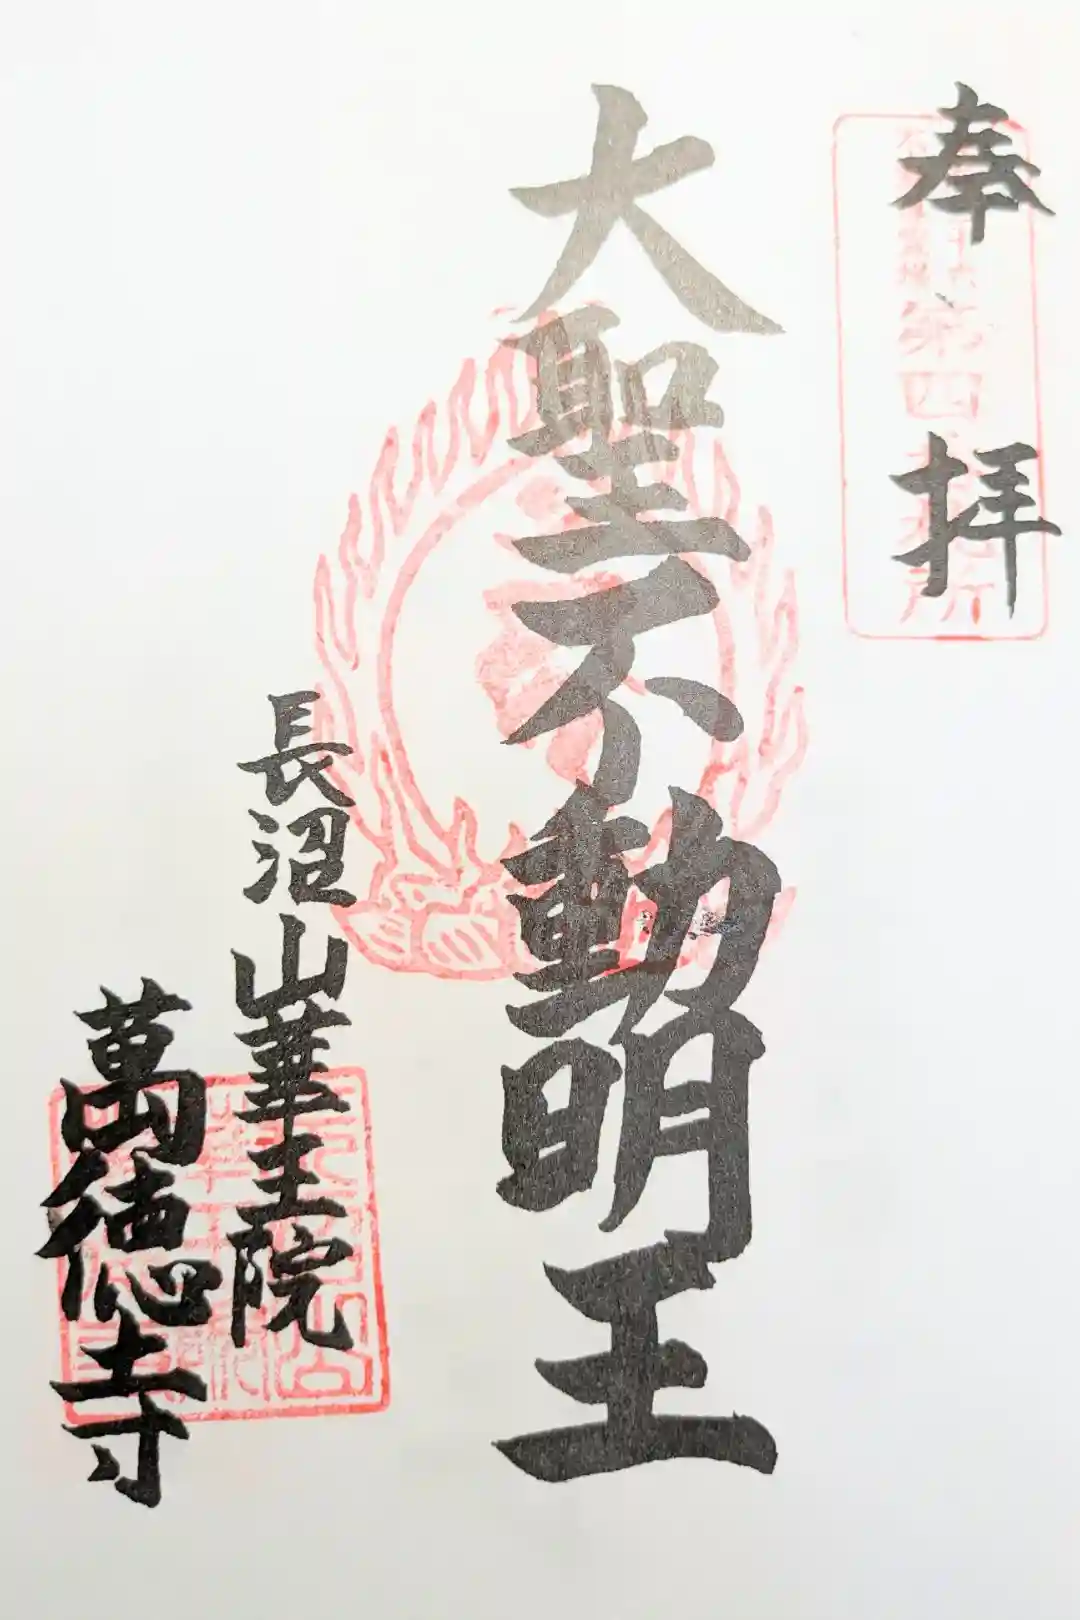 奉拝
第四
大聖不動明王
長沼山華王院
萬徳寺